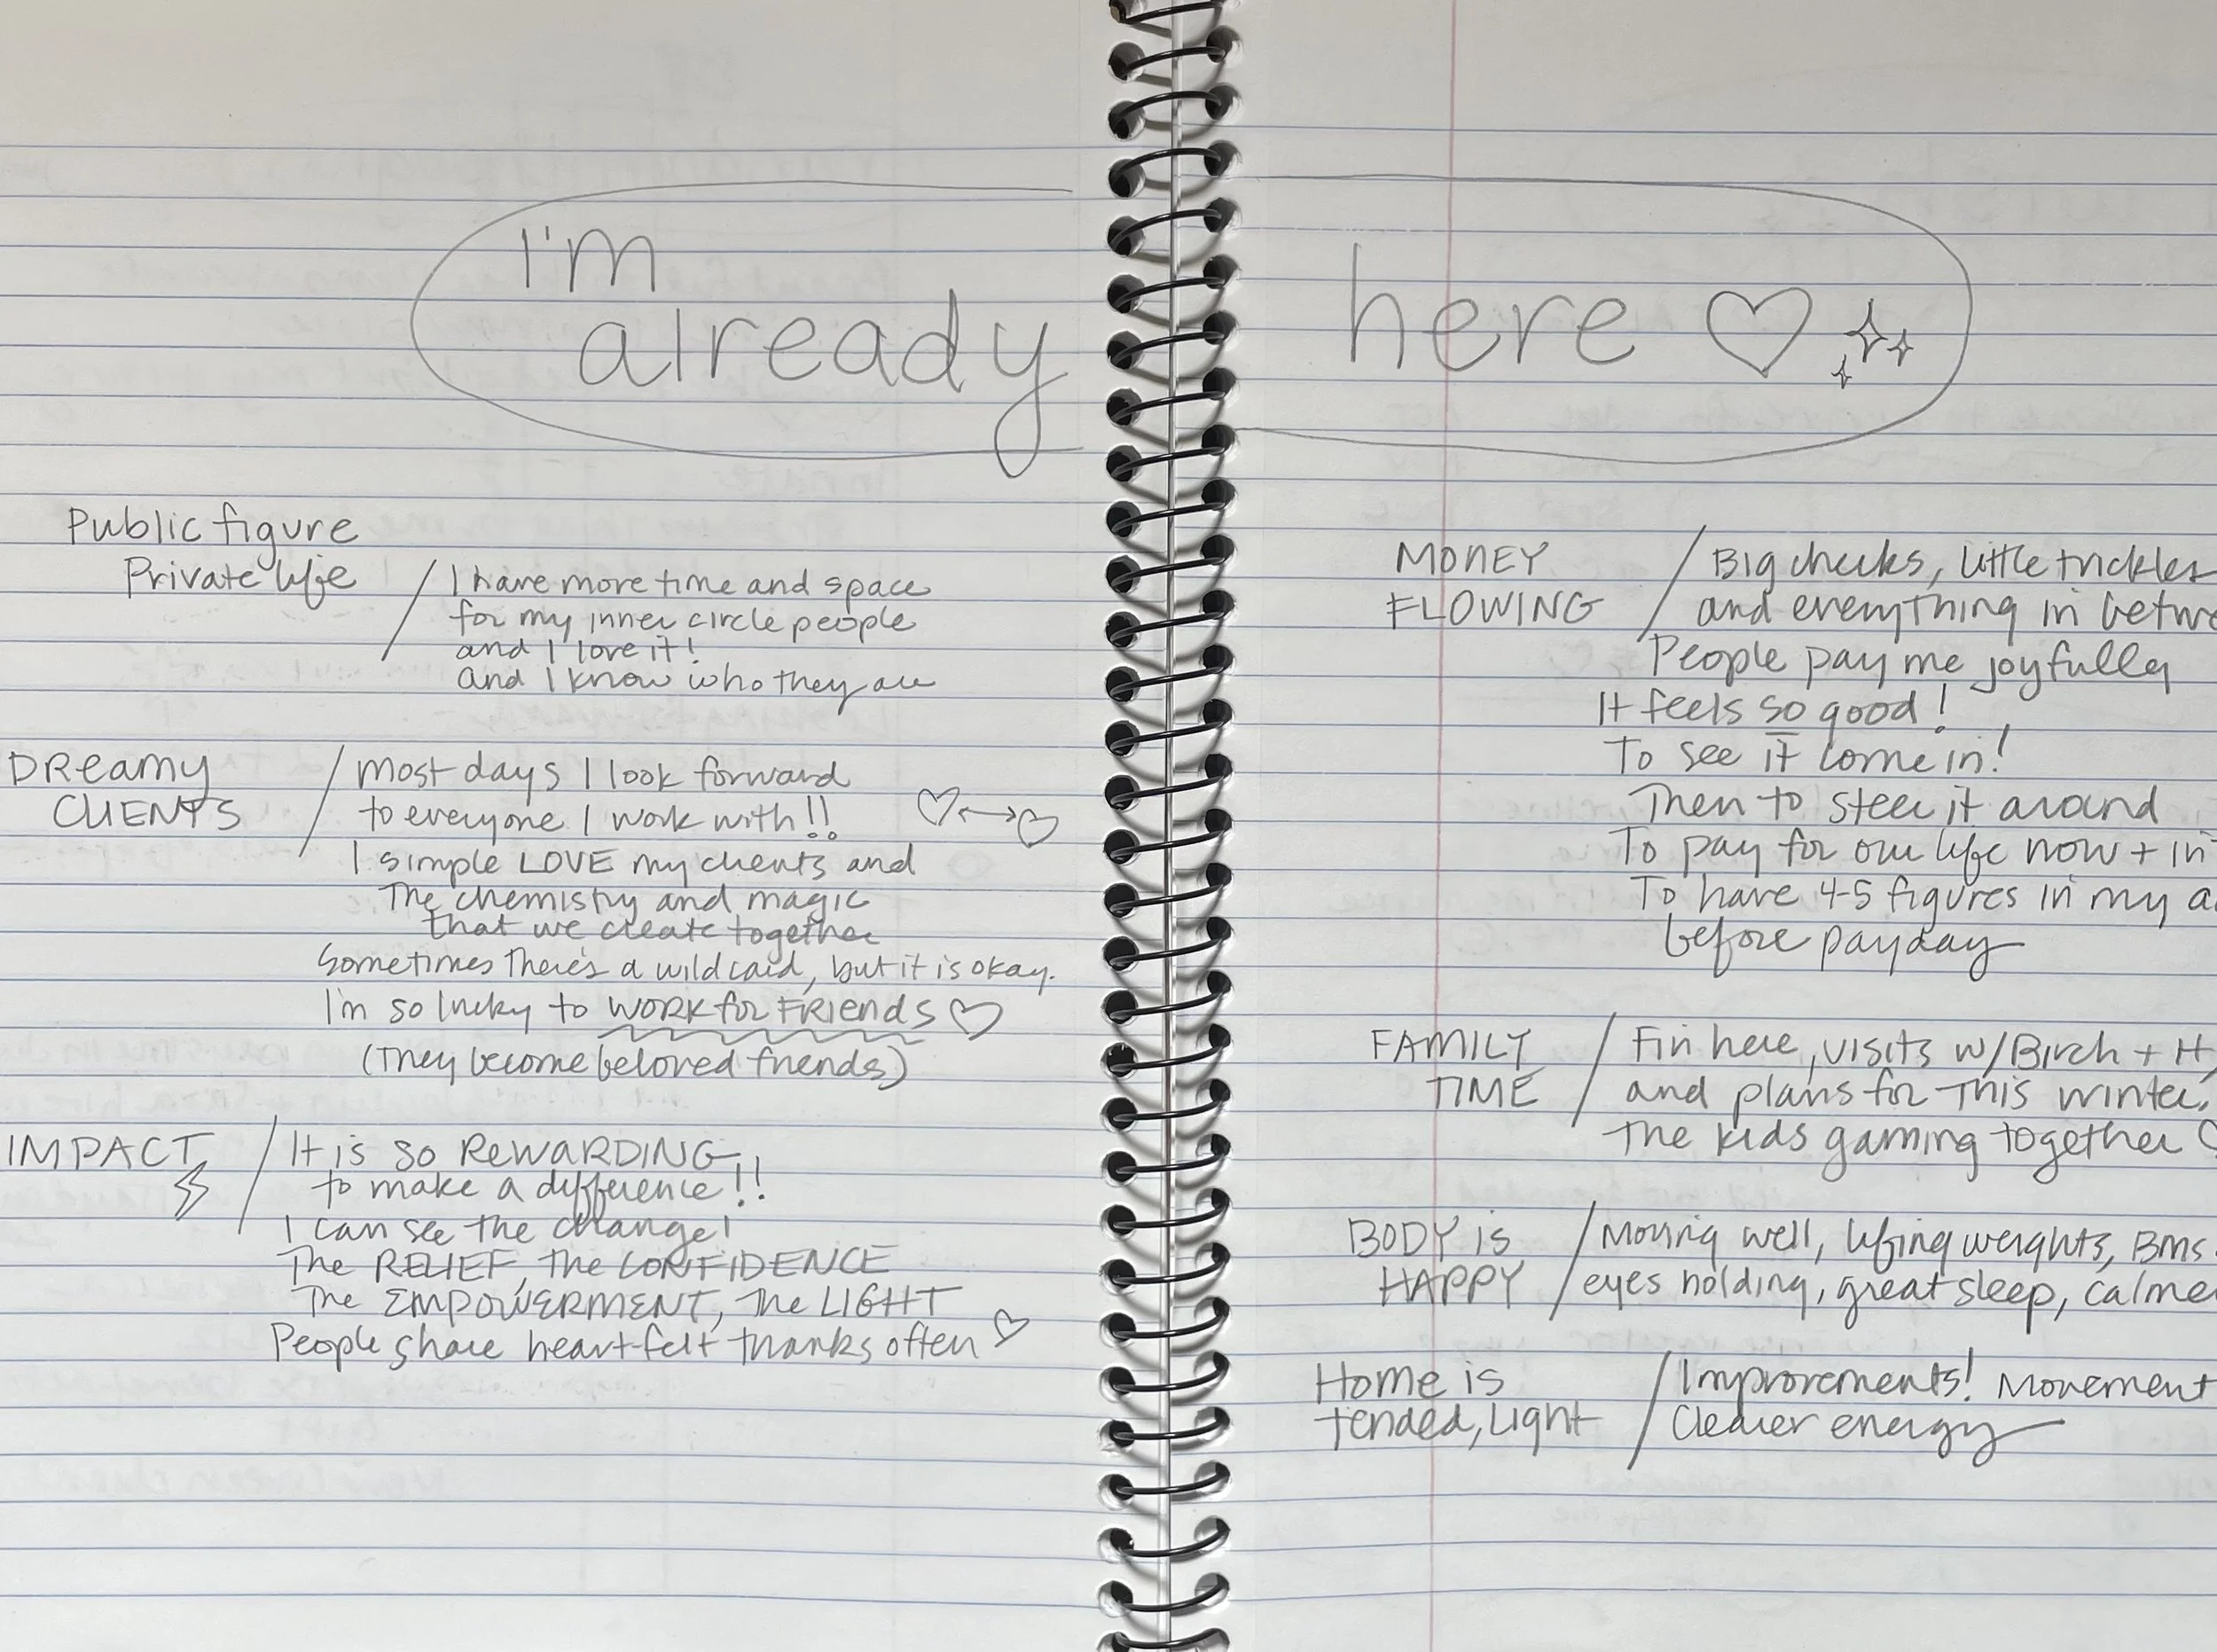 I'm
already
here ♡
Public figure
Private life / I have more time and space
for my inner circle people
and I love it!
and I know who they are
DReamy / most days I look forward
CLIENTS to everyone I work with!!
I simple LOVE my clients and
The chemistry and magic
that we create together
Sometimes there's a wild card, but it is okay.
I'm so lucky to WORK for FRIENDS ♡
(They become beloved friends)
IMPACT / It is so REWARDING
to make a difference!!
I can see the change!
The RELIEF, the CONFIDENCE
The EMPOWERMENT, The LIGHT
People share heart-felt thanks often ♡
MONEY / Big checks, little trickles
FLOWING and everything in betwe
People pay me joyfully
It feels so good!
To see it come in!
Then to steer it around
To pay for our life now + in
To have 4-5 figures in my a
before payday
FAMILY / Fin here, visits w/Birch + H
TIME and plans for This winter.
The kids gaming together ♡
BODY is / Moving well, lifing weights, BMs
HAPPY eyes holding, great sleep, calme
Home is / Improvements! Movement
tended, Light Clearer energy